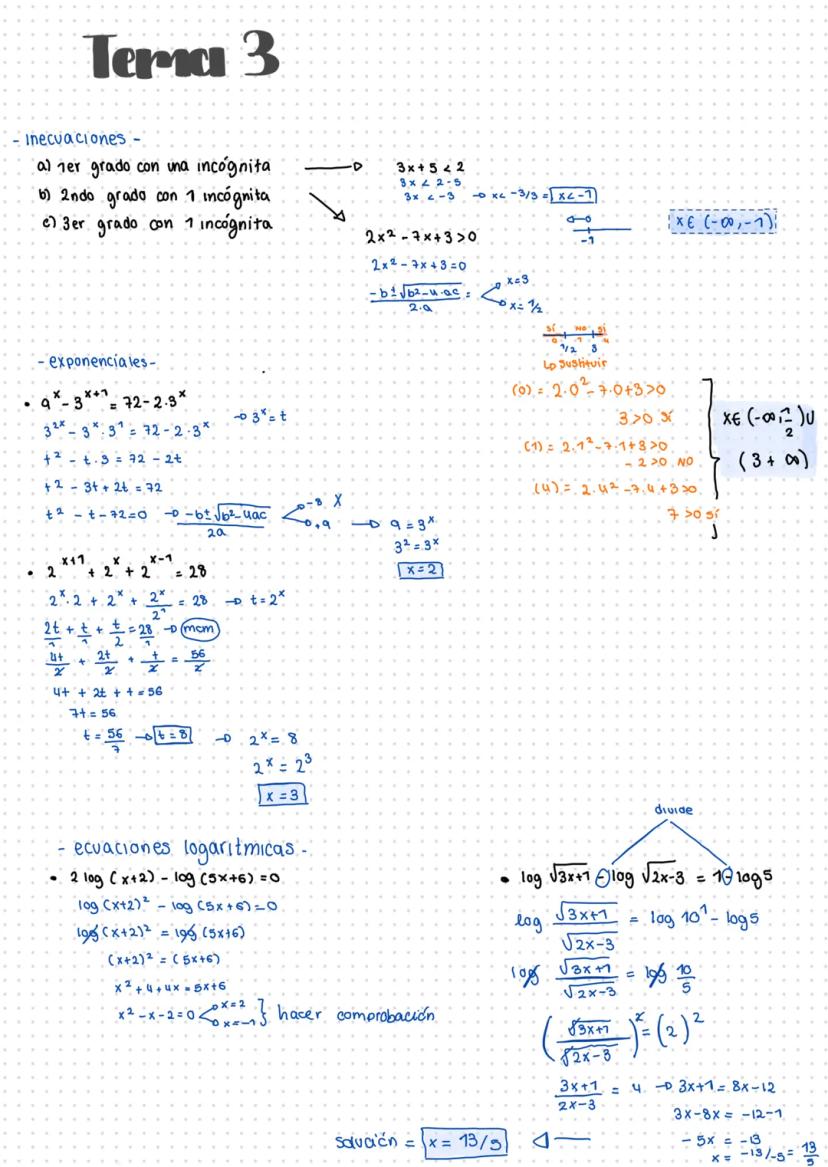 Tema 3
- Inecuaciones -
a) 1er grado con una incógnita
b) 2ndo grado con 1 incógnita
c) 3er grado con 1 incógnita
3x+5 < 2
3x < 2-5
3x < -3 → x < -3/3 = x < -1
-1
x ∈ (-∞, -1)
2x² - 7x + 3 > 0
2x² - 7x + 3 = 0
(-b ± √(b² - 4·ac)) / (2·a) =
x=3
x= 1/2
sí NO sí
0 1 4
1/2 3
Lo sustituir
(0) = 2·0² - 7·0 + 3 > 0
3 > 0 sí
(1) = 2·1² - 7·1 + 3 > 0
-2 > 0 NO
(4) = 2·4² - 7·4 + 3 > 0
7 > 0 sí
x ∈ (-∞, 1/2) U
(3 + ∞)
- exponenciales -
• 9^x - 3^(x+1) = 72 - 2·3^x
3^(2x) - 3^x·3^1 = 72 - 2·3^x → 3^x = t
t² - t·3 = 72 - 2t
t² - 3t + 2t = 72
t² - t - 72 = 0 → (-b ± √(b² - 4ac)) / 2a
-8 X
+9 → 9 = 3^x
3² = 3^x
x = 2
• 2^(x+1) + 2^x + 2^(x-1) = 28
2^x·2 + 2^x + 2^x/2^1 = 28 → t = 2^x
2t/1 + t/1 + t/2 = 28/1 → mcm
4t/2 + 2t/2 + t/2 = 56/2
4t + 2t + t = 56
7t = 56
t = 56/7 → t = 8 → 2^x = 8
2^x = 2³
x = 3
- ecuaciones logarítmicas -
• 2 log (x+2) - log (5x+6) = 0
log (x+2)² - log (5x+6) = 0
log (x+2)² = log (5x+6)
(x+2)² = (5x+6)
x² + 4 + 4x = 5x+6
x² - x - 2 = 0
x=2
x=-1
} hacer comprobación
divide
• log √3x+1 - log √2x-3 = 1 - log 5
log √3x+1 / √2x-3 = log 10^1 - log 5
log √3x+1 / √2x-3 = log 10/5
(√3x+1 / √2x-3)² = (2)²
3x+1 / 2x-3 = 4 → 3x+1 = 8x-12
3x-8x = -12-1
-5x = -13
x = -13/-5 = 13/5
solución = x = 13/5